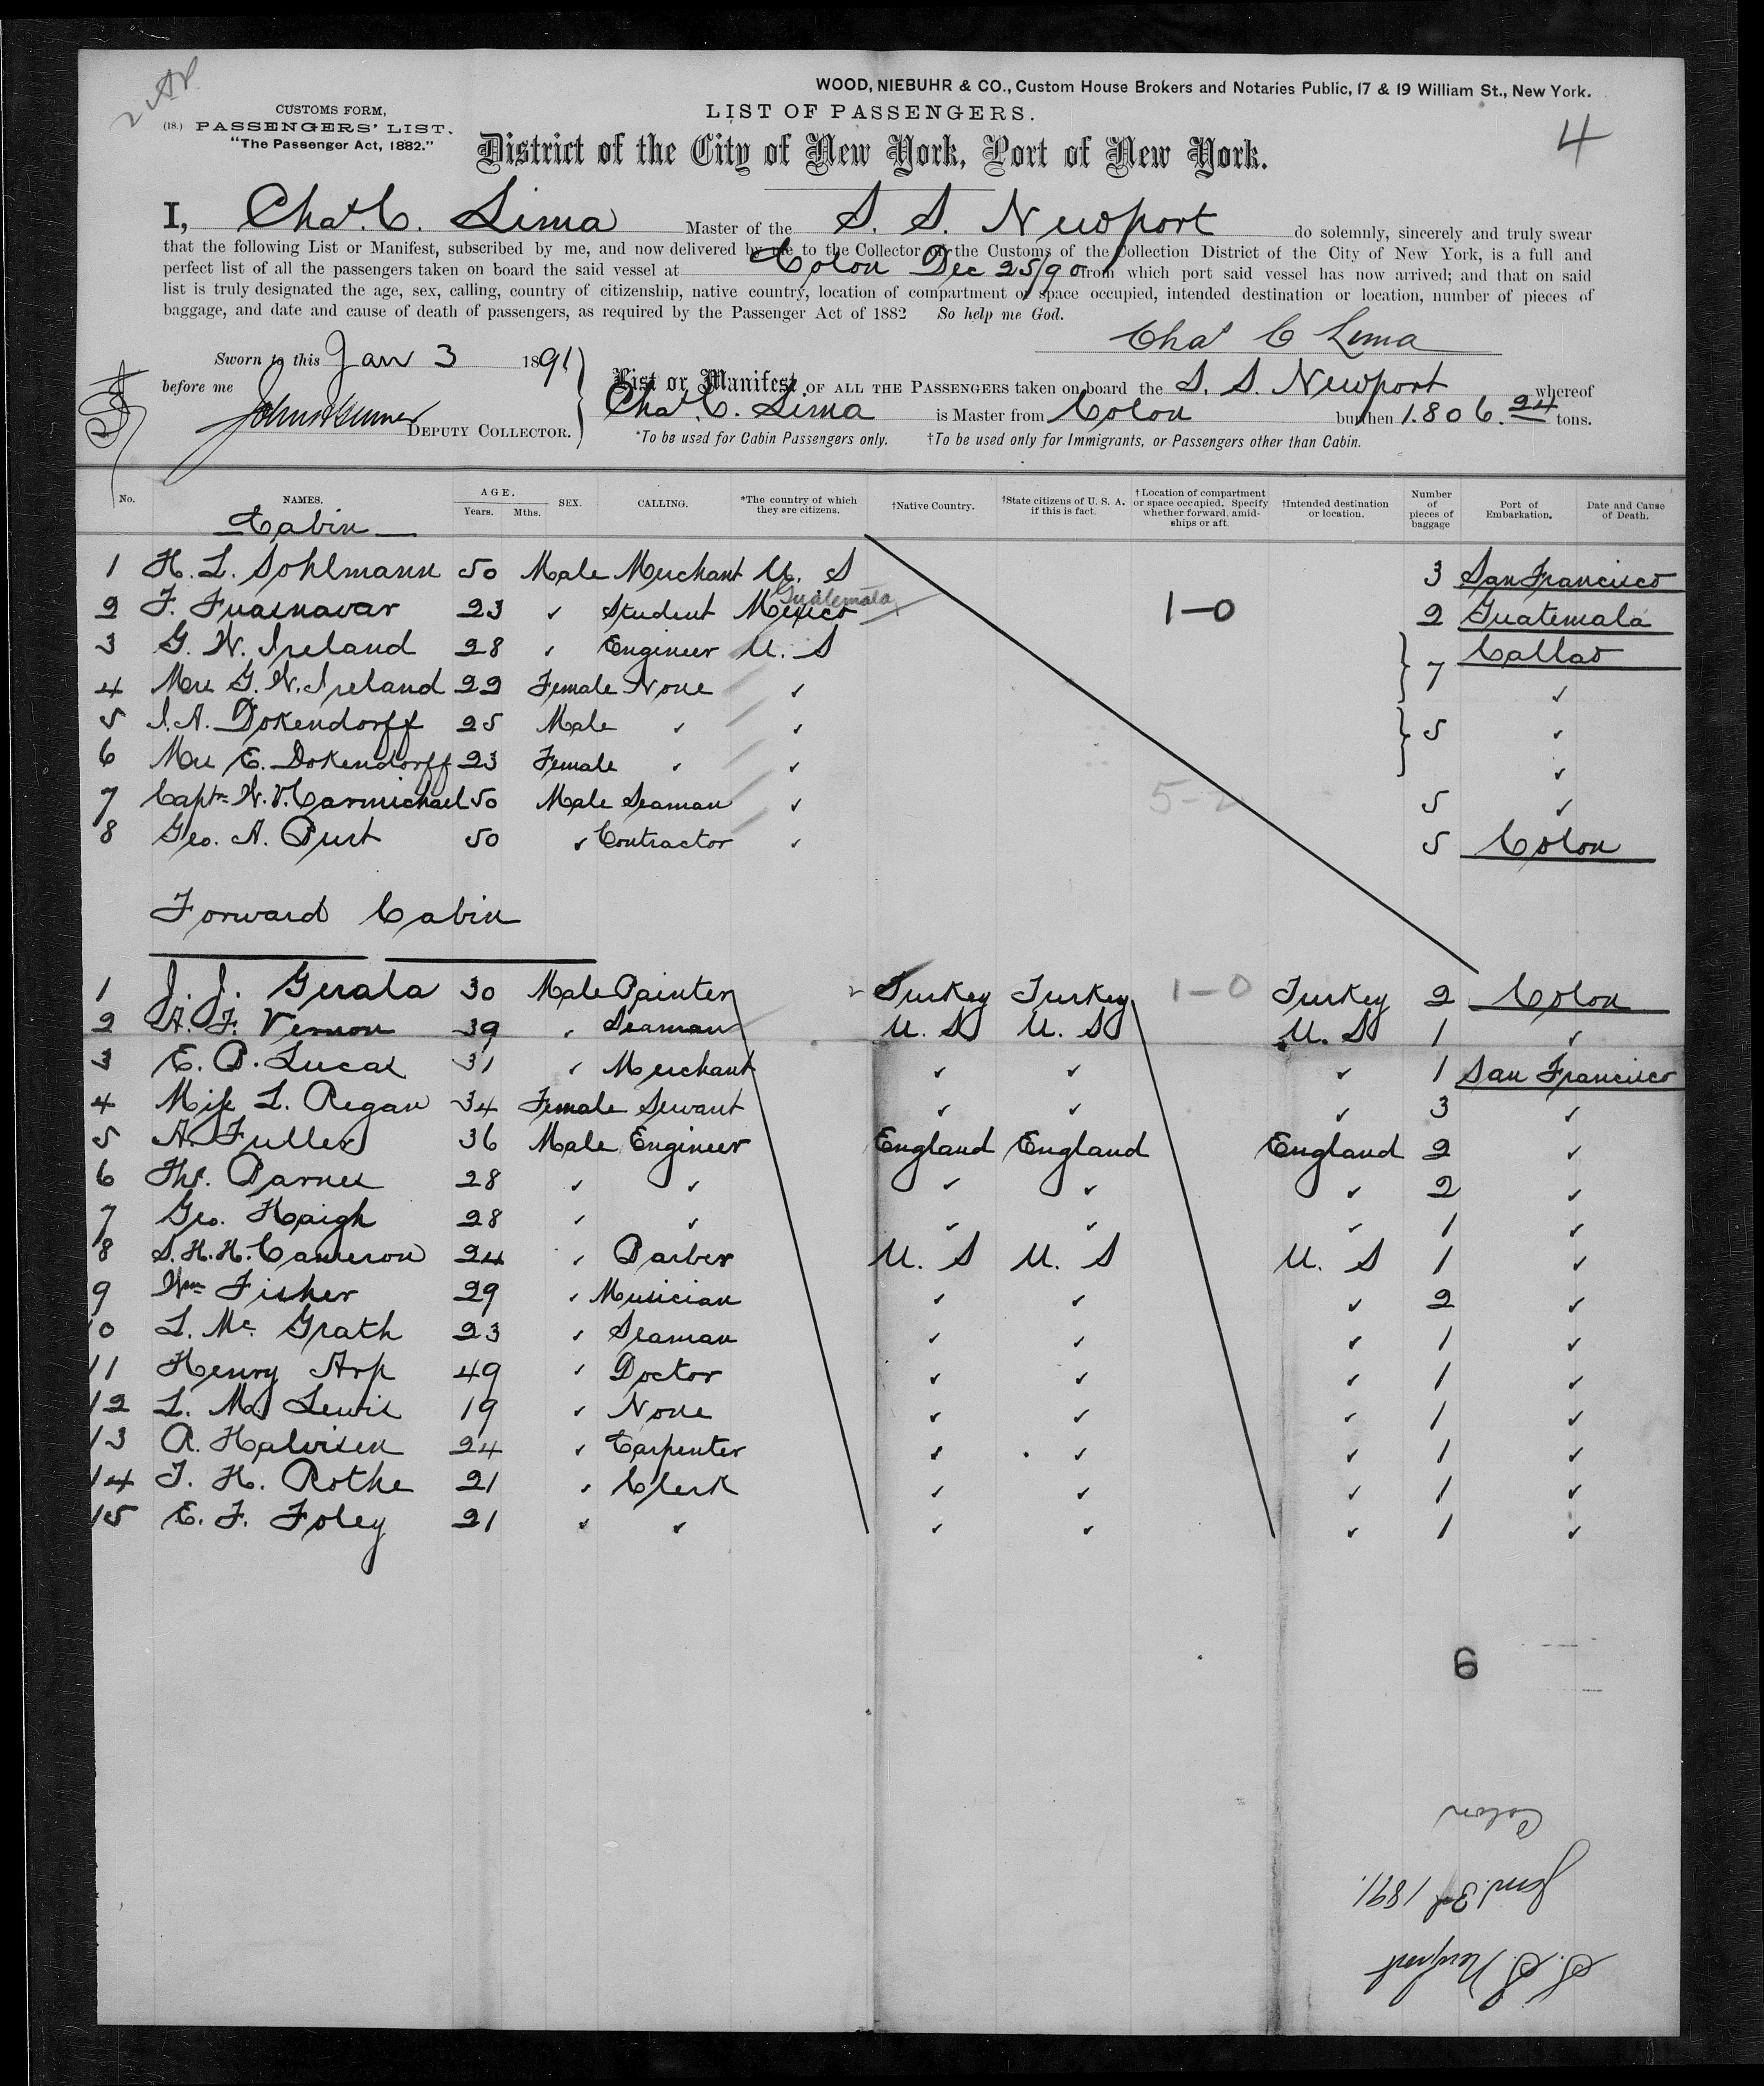 WOOD, NIEBUHR & CO., Custom House Brokers and Notaries Public, 17 & 19 William St., New York.
CUSTOMS FORM,
(18.) PASSENGERS' LIST.
"The Passenger Act, 1882."
LIST OF PASSENGERS.
4
District of the City of New York, Port of New York.
I, Chas. C. Lima Master of the S. S. Newport do solemnly, sincerely and truly swear
that the following List or Manifest, subscribed by me, and now delivered by me to the Collector of the Customs of the Collection District of the City of New York, is a full and
perfect list of all the passengers taken on board the said vessel at Colon Dec 25/90 from which port said vessel has now arrived; and that on said
list is truly designated the age, sex, calling, country of citizenship, native country, location of compartment or space occupied, intended destination or location, number of pieces of
baggage, and date and cause of death of passengers, as required by the Passenger Act of 1882 So help me God.
Chas C Lima
Sworn to this Jan 3 1891
before me
DEPUTY COLLECTOR.
List or Manifest OF ALL THE PASSENGERS taken on board the S. S. Newport whereof
Chas. C. Lima is Master from Colon burthen 1.806.24 tons.
*To be used for Cabin Passengers only. †To be used only for Immigrants, or Passengers other than Cabin.
No. NAMES. AGE. Years. Mths. SEX. CALLING. *The country of which they are citizens. †Native Country. †State citizens of U. S. A. if this is fact. †Location of compartment or space occupied. Specify whether forward, amidships or aft. †Intended destination or location. Number of pieces of baggage Port of Embarkation. Date and Cause of Death.
Cabin
1 H. L. Sohlmann 50 Male Merchant U. S 3 San Francisco
2 F. 23 " Student Mexico Guatemala 1-0 2 Guatemala
3 G. W. Ireland 28 " Engineer U. S } 7 Callao
4 Mrs G. W. Ireland 22 Female None " "
5 J. A. Dokendorff 25 Male " " } 5 "
6 Mrs E. Dokendorff 23 Female " " "
7 Capt. W. V. Carmichael 50 Male Seaman " 5 "
8 Geo. A. Burt 50 " Contractor " 5 Colon
Forward Cabin
1 J. J. Gerala 30 Male Painter Turkey Turkey 1-0 Turkey 2 Colon
2 A. F. Vernon 39 " Seaman U. S U. S U. S 1 "
3 E. B. Lucas 31 " Merchant " " " 1 San Francisco
4 Miss L. Regan 34 Female Servant " " " 3 "
5 A. Fuller 36 Male Engineer England England England 2 "
6 Ths. Barnes 28 " " " " " 2 "
7 Geo. Haigh 28 " " " " " 1 "
8 S. H. H. Cameron 24 " Barber U. S U. S U. S 1 "
9 Wm Fisher 29 " Musician " " " 2 "
10 L. Mc Grath 23 " Seaman " " " 1 "
11 Henry Arp 49 " Doctor " " " 1 "
12 L. M. Lewis 19 " None " " " 1 "
13 A. Halvisen 24 " Carpenter " " " 1 "
14 J. H. Rothe 21 " Clerk " " " 1 "
15 E. F. Foley 21 " " " " " 1 "
6
S. S. Newport
Jan. 3rd 1891.
Colon